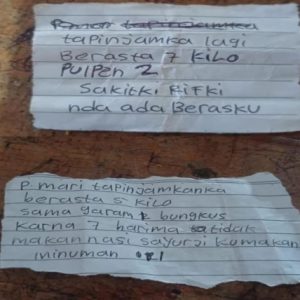 P. mari tapinjamka
tapinjamka lagi
Berasta 7 KiLO
PULPEN 2
Sakitki RiFKi
nda ada Berasku
P mari tapinjamkanka
berasta 5 KiLO
sama garam 1 bungkus
Karna 7 harima tidak
makan nasi sayurji kumakan
minuman